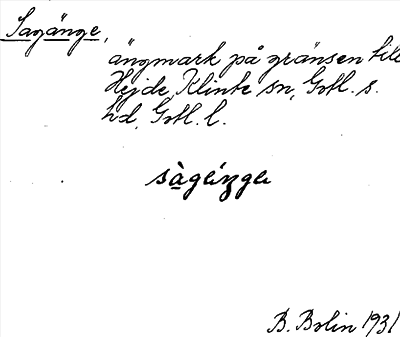 Sagänge,
ängmark på gränsen till
Hejde, Klinte sn, Gotl. s.
hd, Gotl. l.
sàgéŋgə
B. Bolin 1931